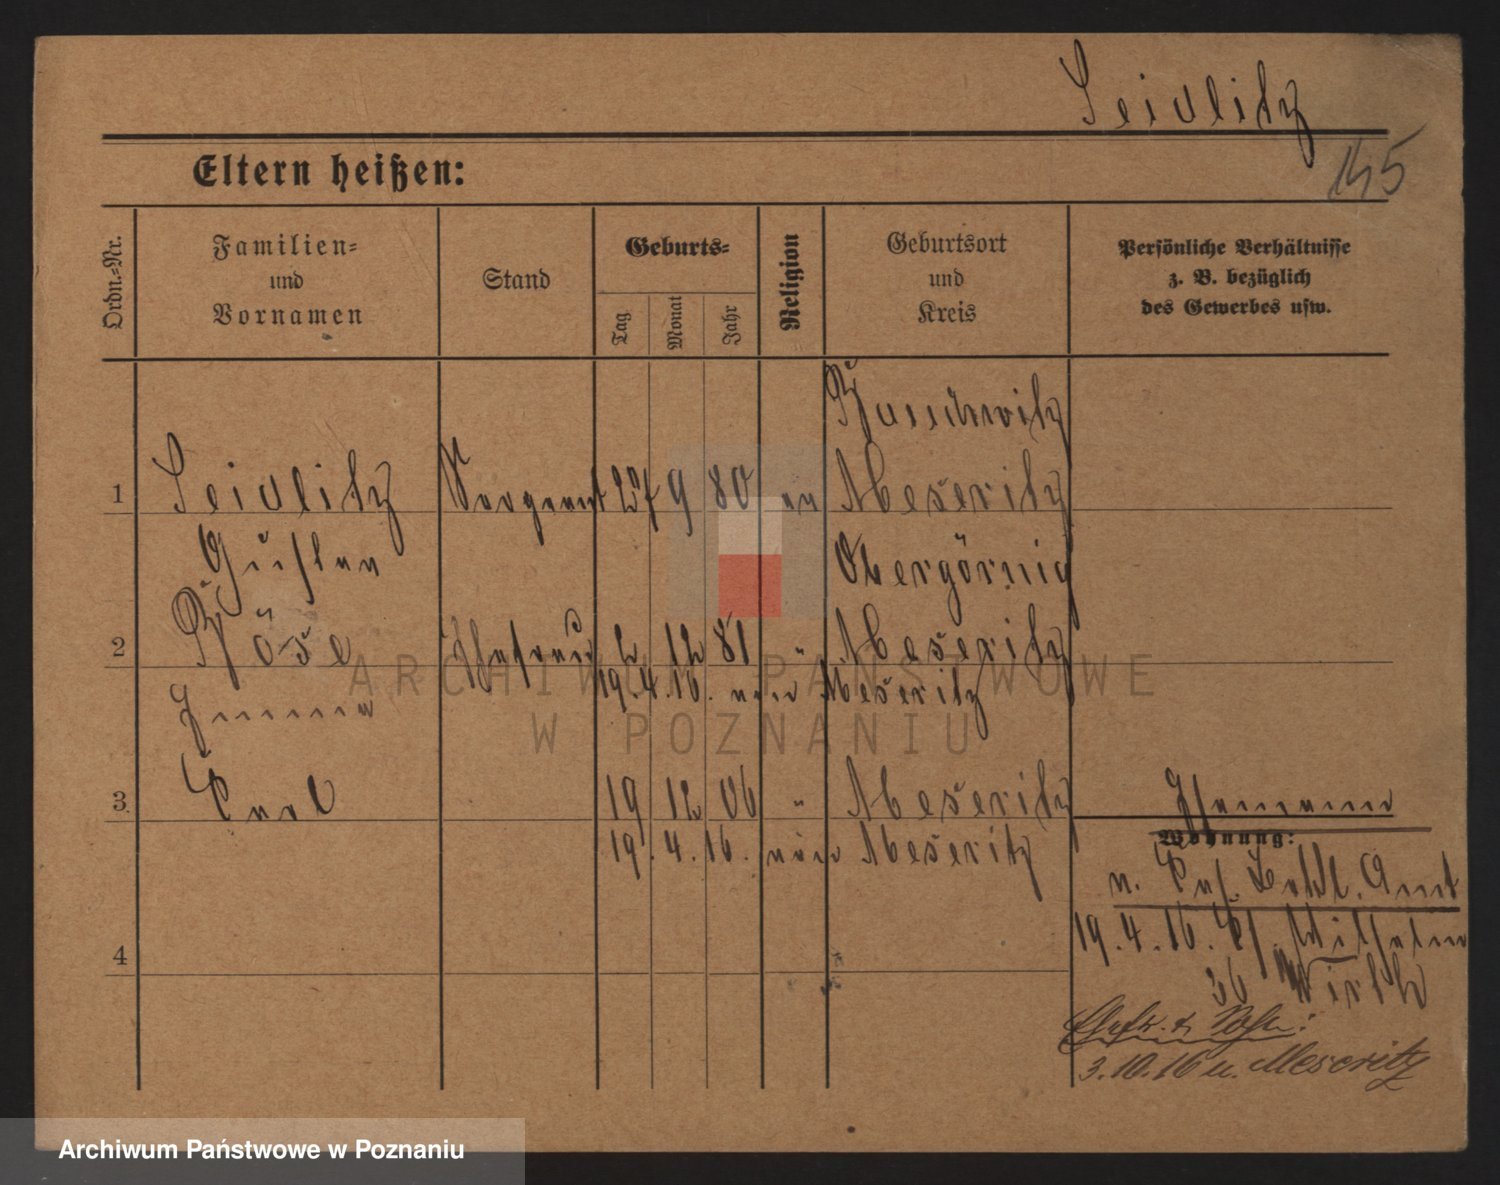 Seidlitz
Eltern heißen:
145
Ordn.-Nr.
Familien- und Vornamen
Stand
Geburts-
Tag
Monat
Jahr
Religion
Geburtsort und Kreis
Persönliche Verhältnisse z. B. bezüglich des Gewerbes usw.
1 Seidlitz Sergeant 27 9 80 ev Meseritz
Gustav
Obergörzig
2 Röse Ehefrau 2 12 81 " Meseritz
19. 4. 16. nach Meseritz
Emma
3 Carl 19 12 06 " Meseritz
19. 4. 16. nach Meseritz
Wohnung:
19. 4. 16. Wilhelm
36 Wirth
4
3.10.16 u. Meseritz
ARCHIWUM PAŃSTWOWE
W POZNANIU
Archiwum Państwowe w Poznaniu